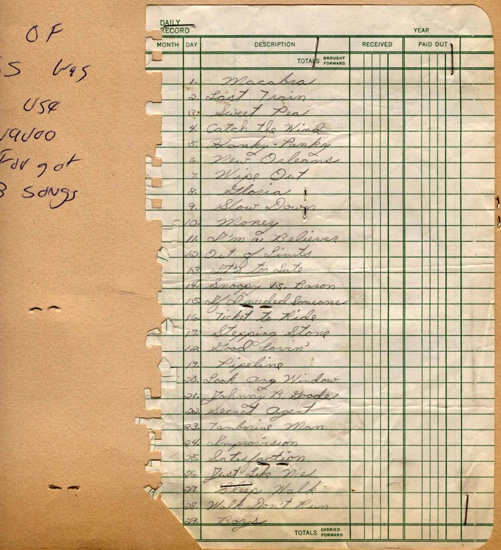 OF
S Was
Use
Forgot
3 songs
DAILY
RECORD
YEAR
MONTH DAY DESCRIPTION RECEIVED PAID OUT
TOTALS BROUGHT FORWARD
1. Macabra
2. Last Train
3. Sweet Pea
4. Catch the Wind
5. Hanky-Panky
6. New Orleans
7. Wipe Out
8. Gloria
9. Slow Down
10. Money
11. I'm a Believer
12. Out of Limits
13. It's to Late
14. Snoopy Vs. Baron
15. If I needed Someone
16. Ticket to Ride
17. Stepping Stone
18. Good Lovin'
19. Pipeline
20. Look any Window
21. Johnny B. Goode
22. Secret Agent
23. Tamborine Man
24. Improvision
25. Satisfaction
26. Just Like Me
27. Sleep Walk
28. Walk Don't Run
29.
TOTALS CARRIED FORWARD